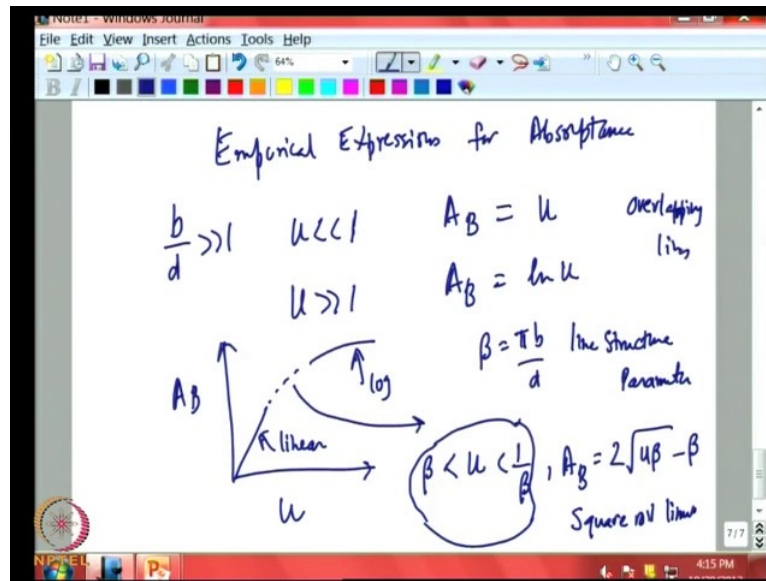 Note1 - Windows Journal
File Edit View Insert Actions Tools Help
64%
B I
Emporical Expressions for Absorptance
b/d >> 1 u << 1 A_B = u overlapping lines
u >> 1 A_B = ln u
β = πb/d line structure parameter
A_B log
linear
u
β < u < 1/β , A_B = 2√uβ - β
Square root limit
7/7
NPTEL
4:15 PM